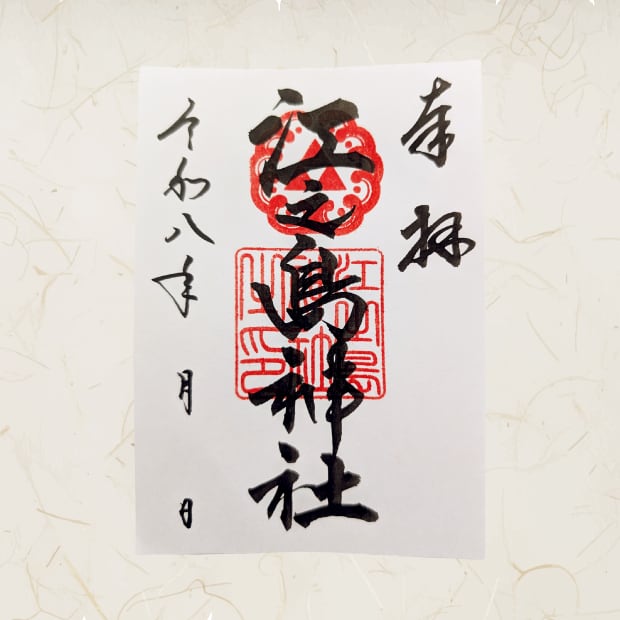 奉拝
江之島神社
令和八年 月 日
江之島神社之印